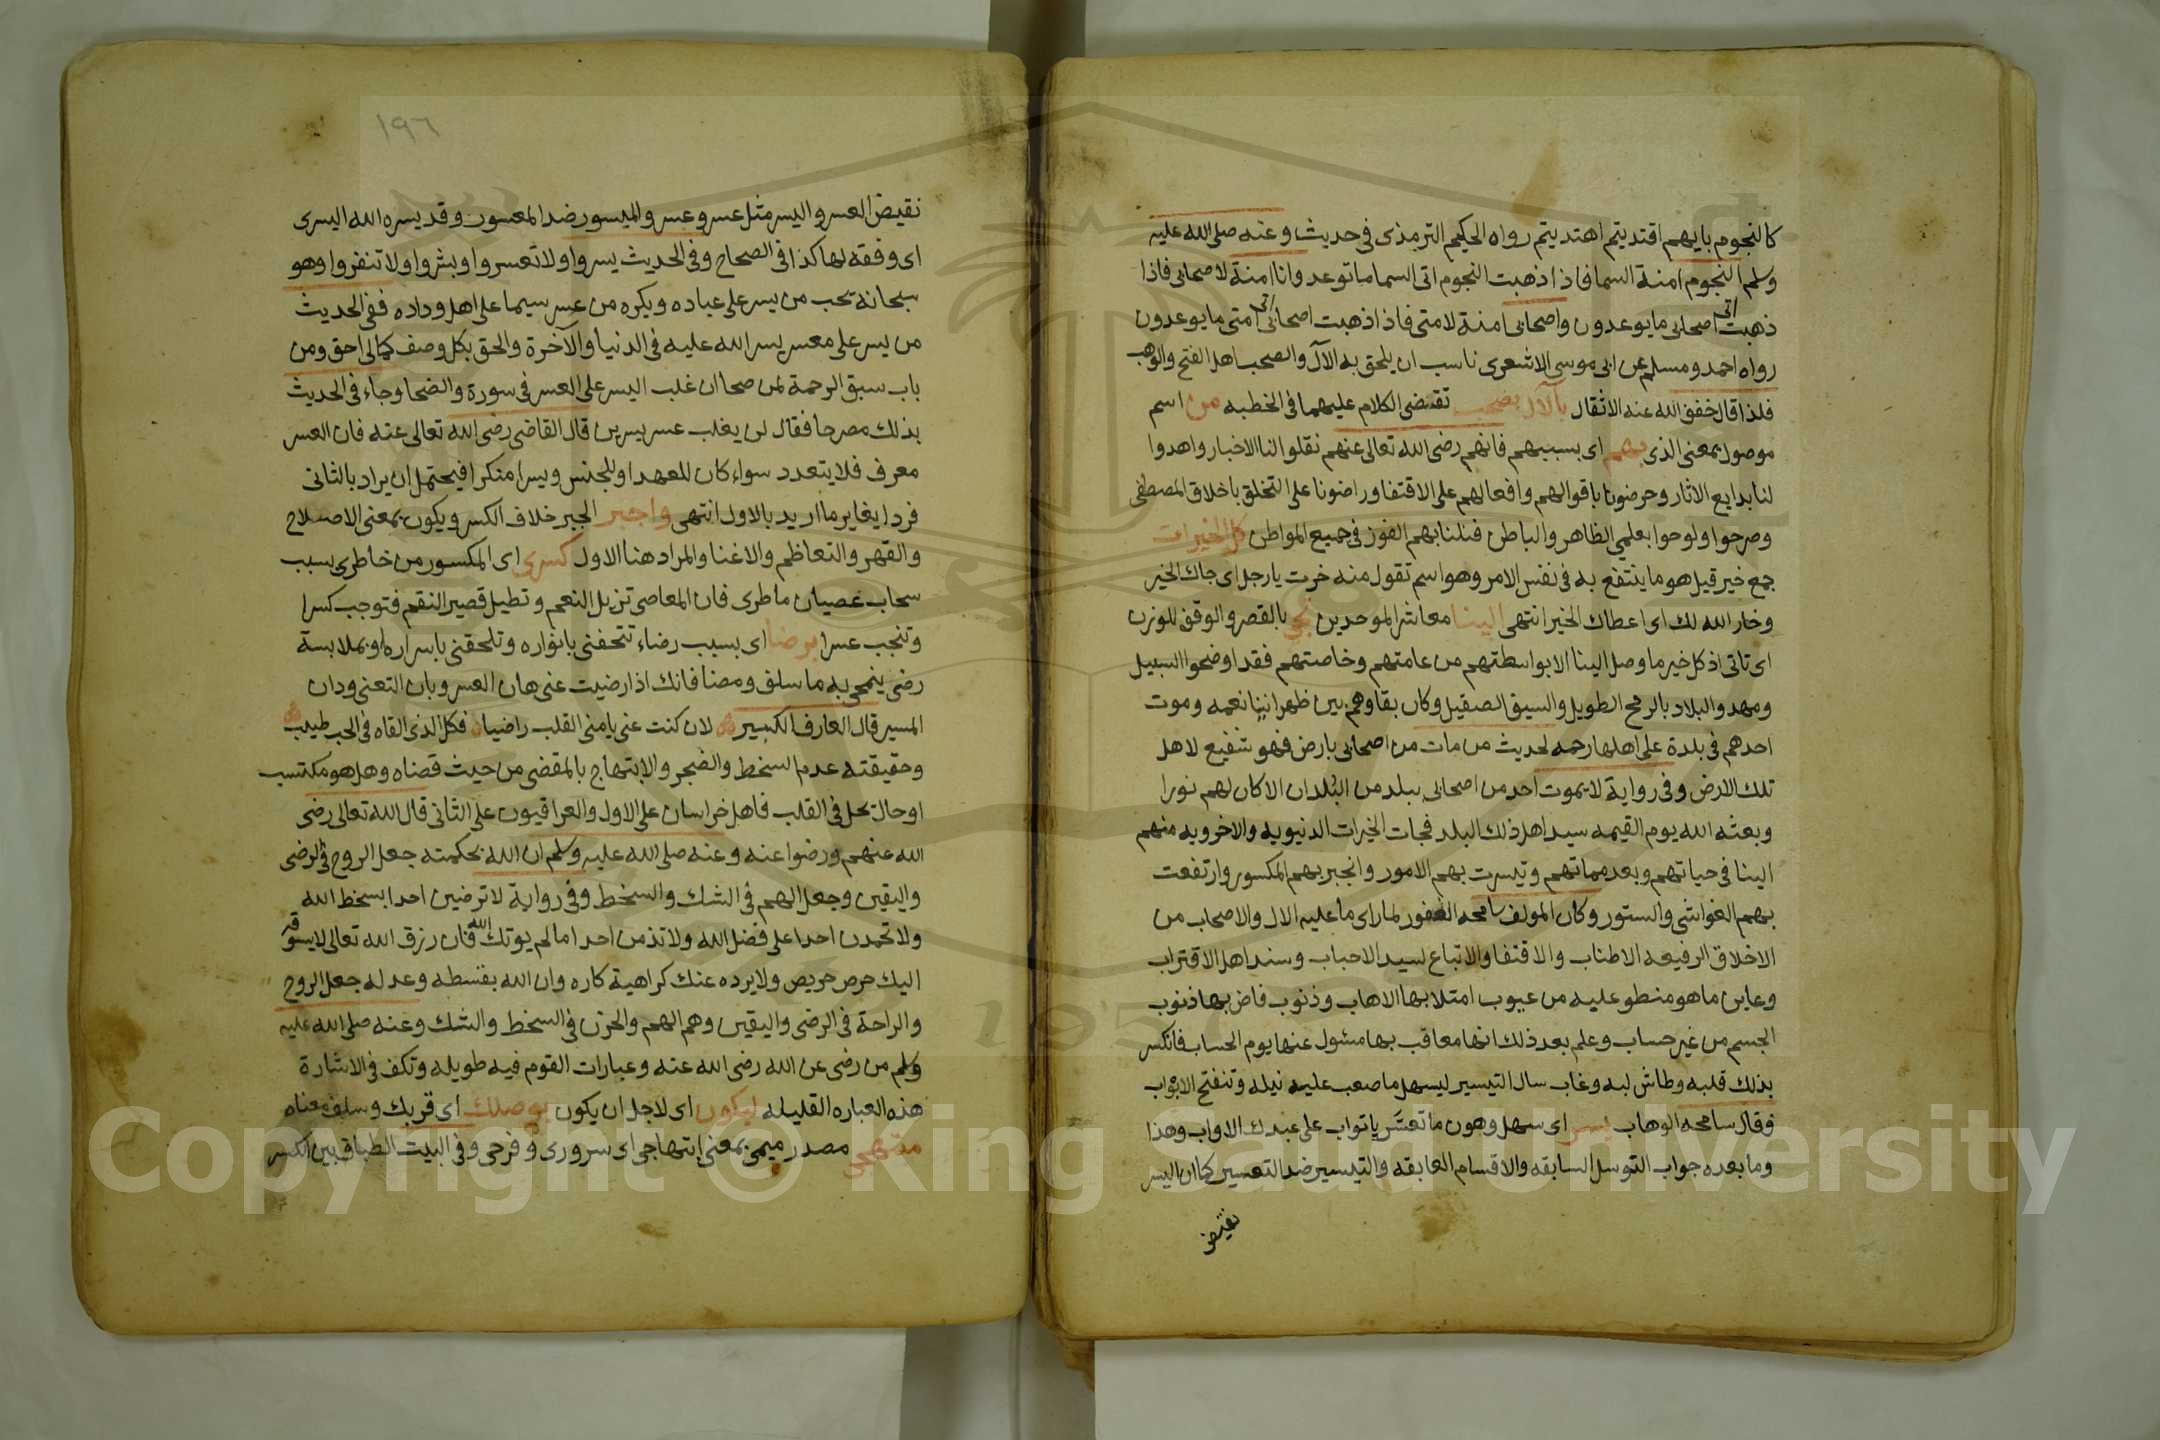 كالنجوم بايهم اقتديتم اهتديتم رواه الحكيم الترمذى فى حديث وعنه صلى الله عليه
وسلم النجوم امنة السما فاذا ذهبت النجوم اتى السما ما توعد وانا امنة لاصحابى فاذا
ذهبت اتى اصحابى ما يوعدون واصحابى امنة لامتى فاذا ذهبت اصحابى اتى امتى ما يوعدون
رواه احمد ومسلم عن ابى موسى الاشعرى ناسب ان يلحق به الآل والصحب اهل الفتح والوهب
فلذا قال خفف الله عنه الاثقال بالآل بصحب تقتضى الكلام عليهما فى الخطبه من اسم
موصول بمعنى الذى بهم اى بسببهم فانهم رضى الله تعالى عنهم نقلوا النا الاخبار واهدوا
لنا بدايع الاثار وحرضونا باقوالهم وافعالهم على الاقتفا وراضونا على التخلق باخلاق المصطفى
وصرحوا ولوحوا بعلمى الظاهر والباطن فنلنا بهم الفوز فى جميع المواطن كل الخيرات
جمع خير قيل هو ما ينتفع به فى نفس الامر وهو اسم تقول منه خرت يا رجل اى جاك الخير
وخار الله لك اى اعطاك الخير انتهى الينا معاشر الموحدين تجى بالقصر والوقف للوزن
اى تاتى اذ كل خير ما وصل الينا الا بواسطتهم من عامتهم وخاصتهم فقد اوضحوا السبيل
ومهدوا البلاد بالرمح الطويل والسيف الصقيل وكان بقاوهم بين ظهرانينا نعمه وموت
احدهم فى بلدة على اهلها رحمه لحديث من مات من اصحابى بارض فهو شفيع لاهل
تلك الارض وفى رواية لا يموت احد من اصحابى ببلد من البلدان الا كان لهم نورا
وبعثه الله يوم القيمه سيد اهل ذلك البلد فجات الخيرات الدنيويه والاخرويه منهم
الينا فى حياتهم وبعد مماتهم وتيسرت بهم الامور وانجبر بهم المكسور وارتفعت
بهم الغواشى والستور وكان المولف سامحه الغفور لما راى ما عليه الال والاصحاب من
الاخلاق الرفيعه الاطناب والاقتفا والاتباع لسيد الاحباب وسند اهل الاقتراب
وعاين ما هو منطو عليه من عيوب امتلا بها الاهاب وذنوب فاض بها ذنوب
الجسم من غير حساب وعلم بعد ذلك انها معاقب بها مسئول عنها يوم الحساب فانكسر
بذلك قلبه وطاش لبه وغاب سال التيسير ليسهل ما صعب عليه نيله وتنفتح الابواب
فقال سامحه الوهاب يسر اى سهل وهون ما تعسر يا تواب على عبدك الاواب وهذا
وما بعده جواب التوسل السابقه والاقسام العابقه والتيسير ضد التعسير كما ان اليسر
نقيض
١٩٦
نقيض العسر واليسر مثل عسر وعسر والميسور ضد المعسور وقد يسره الله اليسرى
اى وفقه لها كذا فى الصحاح وفى الحديث يسروا ولا تعسروا وبشروا ولا تنفروا وهو
سبحانه يحب من يسر على عباده ويكره من عسر سيما على اهل وداده ففى الحديث
من يسر على معسر يسر الله عليه فى الدنيا والآخرة والحق بكل وصف كمالى احق ومن
باب سبق الرحمة لمن صحا ان غلب اليسر على العسر فى سورة والضحا وجاء فى الحديث
بذلك مصرحا فقال لن يغلب عسر يسرين قال القاضى رضى الله تعالى عنه فان العسر
معرف فلا يتعدد سواء كان للعهد او للجنس ويسرا منكرا فيحتمل ان يراد بالثانى
فردا يغاير ما اريد بالاول انتهى واجبر الجبر خلاف الكسر ويكون بمعنى الاصلاح
والقهر والتعاظم والاغنا والمراد هنا الاول كسرى اى المكسور من خاطرى بسبب
سحاب عصيان ماطرى فان المعاصى تزيل النعم وتطيل قصير النقم فتوجب كسرا
وتنجب عسرا برضا اى بسبب رضاء تتحفنى بانواره وتلحقنى باسراره او بملابسة
رضى ينمحى به ما سلف ومضا فانك اذا رضيت عنى هان العسر وبان التعنى ودان
المسير قال العارف الكبير لان كنت عنى يا منى القلب راضيا فكل الذى القاه فى الحب طيب
وحقيقته عدم السخط والضجر والابتهاج بالمقضى من حيث قضاه وهل هو مكتسب
او حال تحل فى القلب فاهل خراسان على الاول والعراقيون على الثانى قال الله تعالى رضى
الله عنهم ورضوا عنه وعنه صلى الله عليه وسلم ان الله بحكمته جعل الروح فى الرضى
واليقين وجعل الهم فى الشك والسخط وفى رواية لا ترضين احدا بسخط الله
ولا تحمدن احدا على فضل الله ولا تذمن احدا ما لم يوتك الله فان رزق الله تعالى لا يسوقه
اليك حرص حريص ولا يرده عنك كراهية كاره وان الله بقسطه وعدله جعل الروح
والراحة فى الرضى واليقين وهم الهم والحزن فى السخط والشك وعنه صلى الله عليه
وسلم من رضى عن الله رضى الله عنه وعبارات القوم فيه طويله وتكف فى الاشارة
هذه العباره القليله ليكون اى لاجل ان يكون بوصلك اى قربك وسلف معناه
مبتهجى مصدر ميمى بمعنى ابتهاجى اى سرورى وفرحى وفى البيت الطباق بين الكسر
Copyright © King Saud University